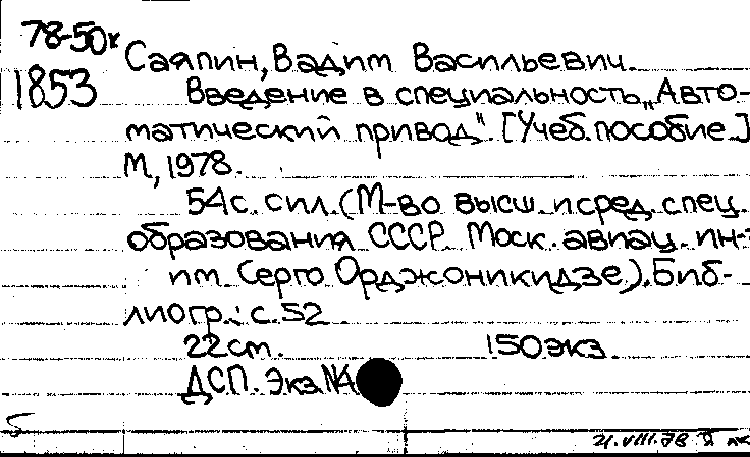 78-50к
1853
Саяпин, Вадим Васильевич.
Введение в специальность „Авто-
матический привод" [Учеб. пособие.]
М, 1978.
54 с. с ил. (М-во высш. и сред. спец.
образования СССР. Моск. авиац. ин-т
им. Серго Орджоникидзе). Биб-
лиогр.: с. 52
22 см. 150 экз.
ДСП. Экз №4
5
21.VIII.78